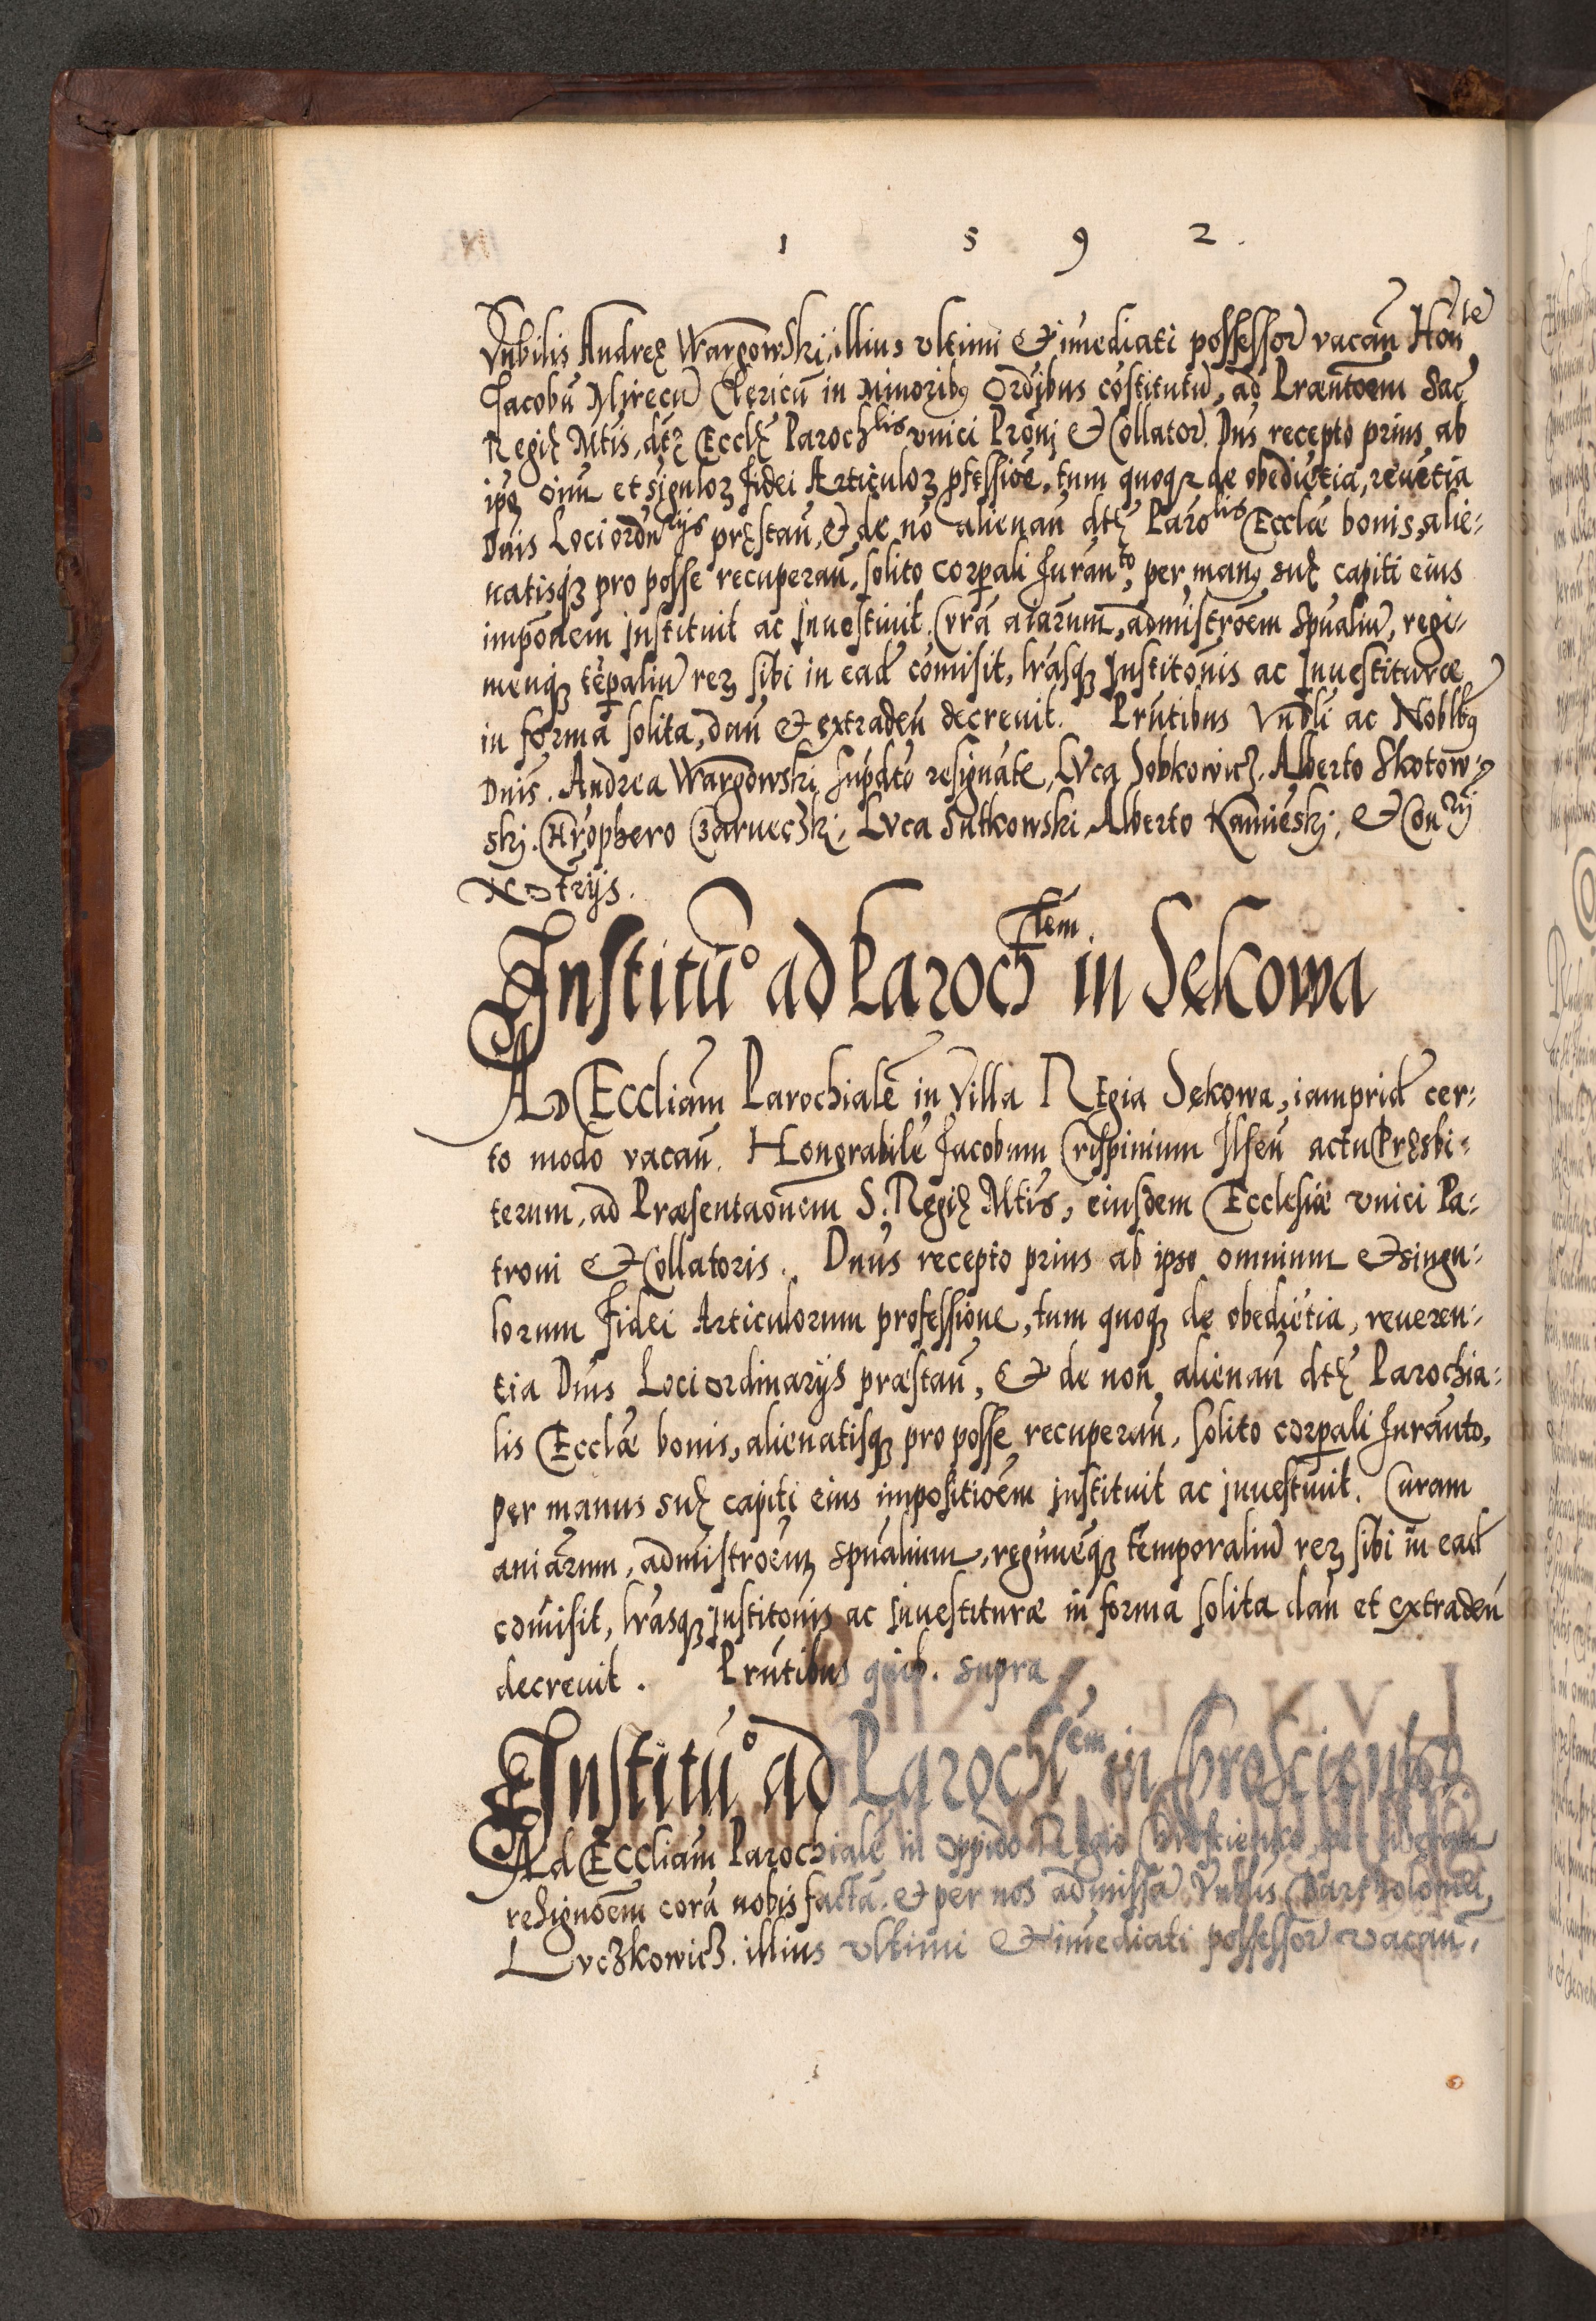 1 5 9 2.
Vnbilis Andreę Wargowskj, illius vltimi & imediati possessor vacan̄ Honle
Jacobū Mirecū Clericū in Minoribꝯ Ordjbus cōstitutū, ad Præntōem Sac
Regię Mtis, dtę Ecclę Parochlis vnici Prōnj & Collator. Dns recepto prius ab
ipo oīnu et sīguloꝝ fidei Articuloꝝ pfessiōe, tum quoqꝫ de obediētia, reuētia
Dnis Loci ordnrijs pręstan̄, & de nō alienan̄ dtę Parolis Ecclæ bonis, alie-
natisqꝫ pro posse recuperan̄, solito corpali Juranto, per manꝯ suę capiti eius
impōnem jnstituit ac jnuestiuit. Curā aīarum, admistrōem Spūaliū, regi-
menqꝫ tēpaliū reꝝ sibi in eadē cōmisit, lr̄asqꝫ Jnstitōnis ac Jnuestituræ
in forma solita, dan̄ & extraden̄ decreuit. Prn̄tibus Vnbli ac Noblbꝯ
Dnis. Andrea Wargowski supdto resignāte, Lvca Sobkowicz. Alberto Skotow-
skj. Chrophero Czarneczkj, Lvca Sutkowski, Alberto Kamieskj, & Conrij
Notrijs.
Institu͂o ad Parochlem in Sękowa
AD Eccliam Parochialē in Villa Regia Sękowa, iampridē cer-
to modo vacan̄. Honorabilē Jacobum Crispinium Ilsen̄ actu Pręsbi-
terum, ad Præsentaōnem S. Regię Mtis, eiusdem Ecclesiæ vnici Pa-
troni & Collatoris. Dnus recepto prius ab ipso omnium & singu-
lorum fidei Articulorum professione, tum quoqꝫ de obediētia, reueren-
tia Dnis Loci ordinarijs præstan̄, & de non alienan̄ dtę Parochia-
lis Ecclæ bonis, alienatisqꝫ pro posse recuperan̄, solito corpali Juranto,
per manus suę capiti eius impositiōem jnstituit ac jnuestiuit. Curam
aniarum, admistrōem spūalium, regimēqꝫ temporaliū reꝝ sibi in eadē
comisit, lr̄asqꝫ jnstitōnis ac jnuestituræ in forma solita dan̄ et extraden̄
decreuit. Prn̄tibus quib. supra
Institu͂o ad Parochlem in Chroscienko
Ad Eccliam Parochialē in Oppido Regio Chroscienko, per
resignōem corā nobis factā, & per nos admissā Vnblis Bartholomei,
Lvczkowicz. illius vltimi & imediati possessor vacan̄,